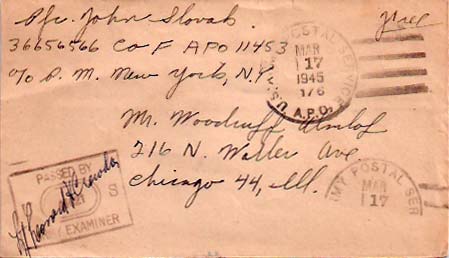 Pfc. John Slovak
Free
36656566 Co F APO 11453
c/o P. M. New York, N.Y.
U.S. ARMY POSTAL SERVICE
MAR
17
1945
176
A.P.O.
Mr. Woodruff Almlof
216 N. Waller Ave
Chicago 44, Ill.
PASSED BY
S
EXAMINER
MY POSTAL SER
MAR
17